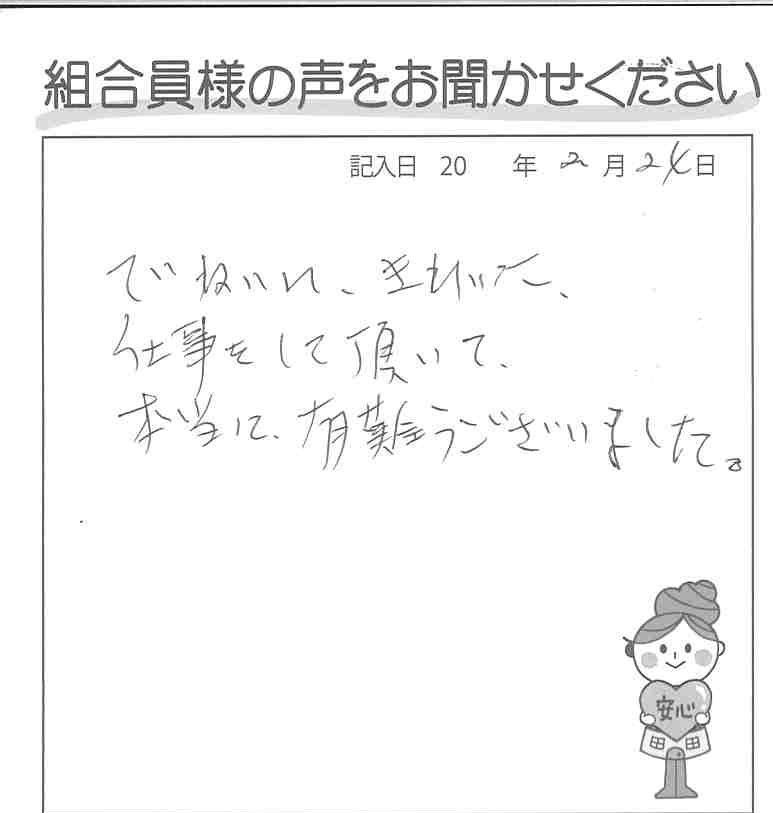 組合員様の声をお聞かせください
記入日 20 年 2月24日
ていねいれ、きもいった、
仕事をして頂いて、
本当に、有難うございました。
安心